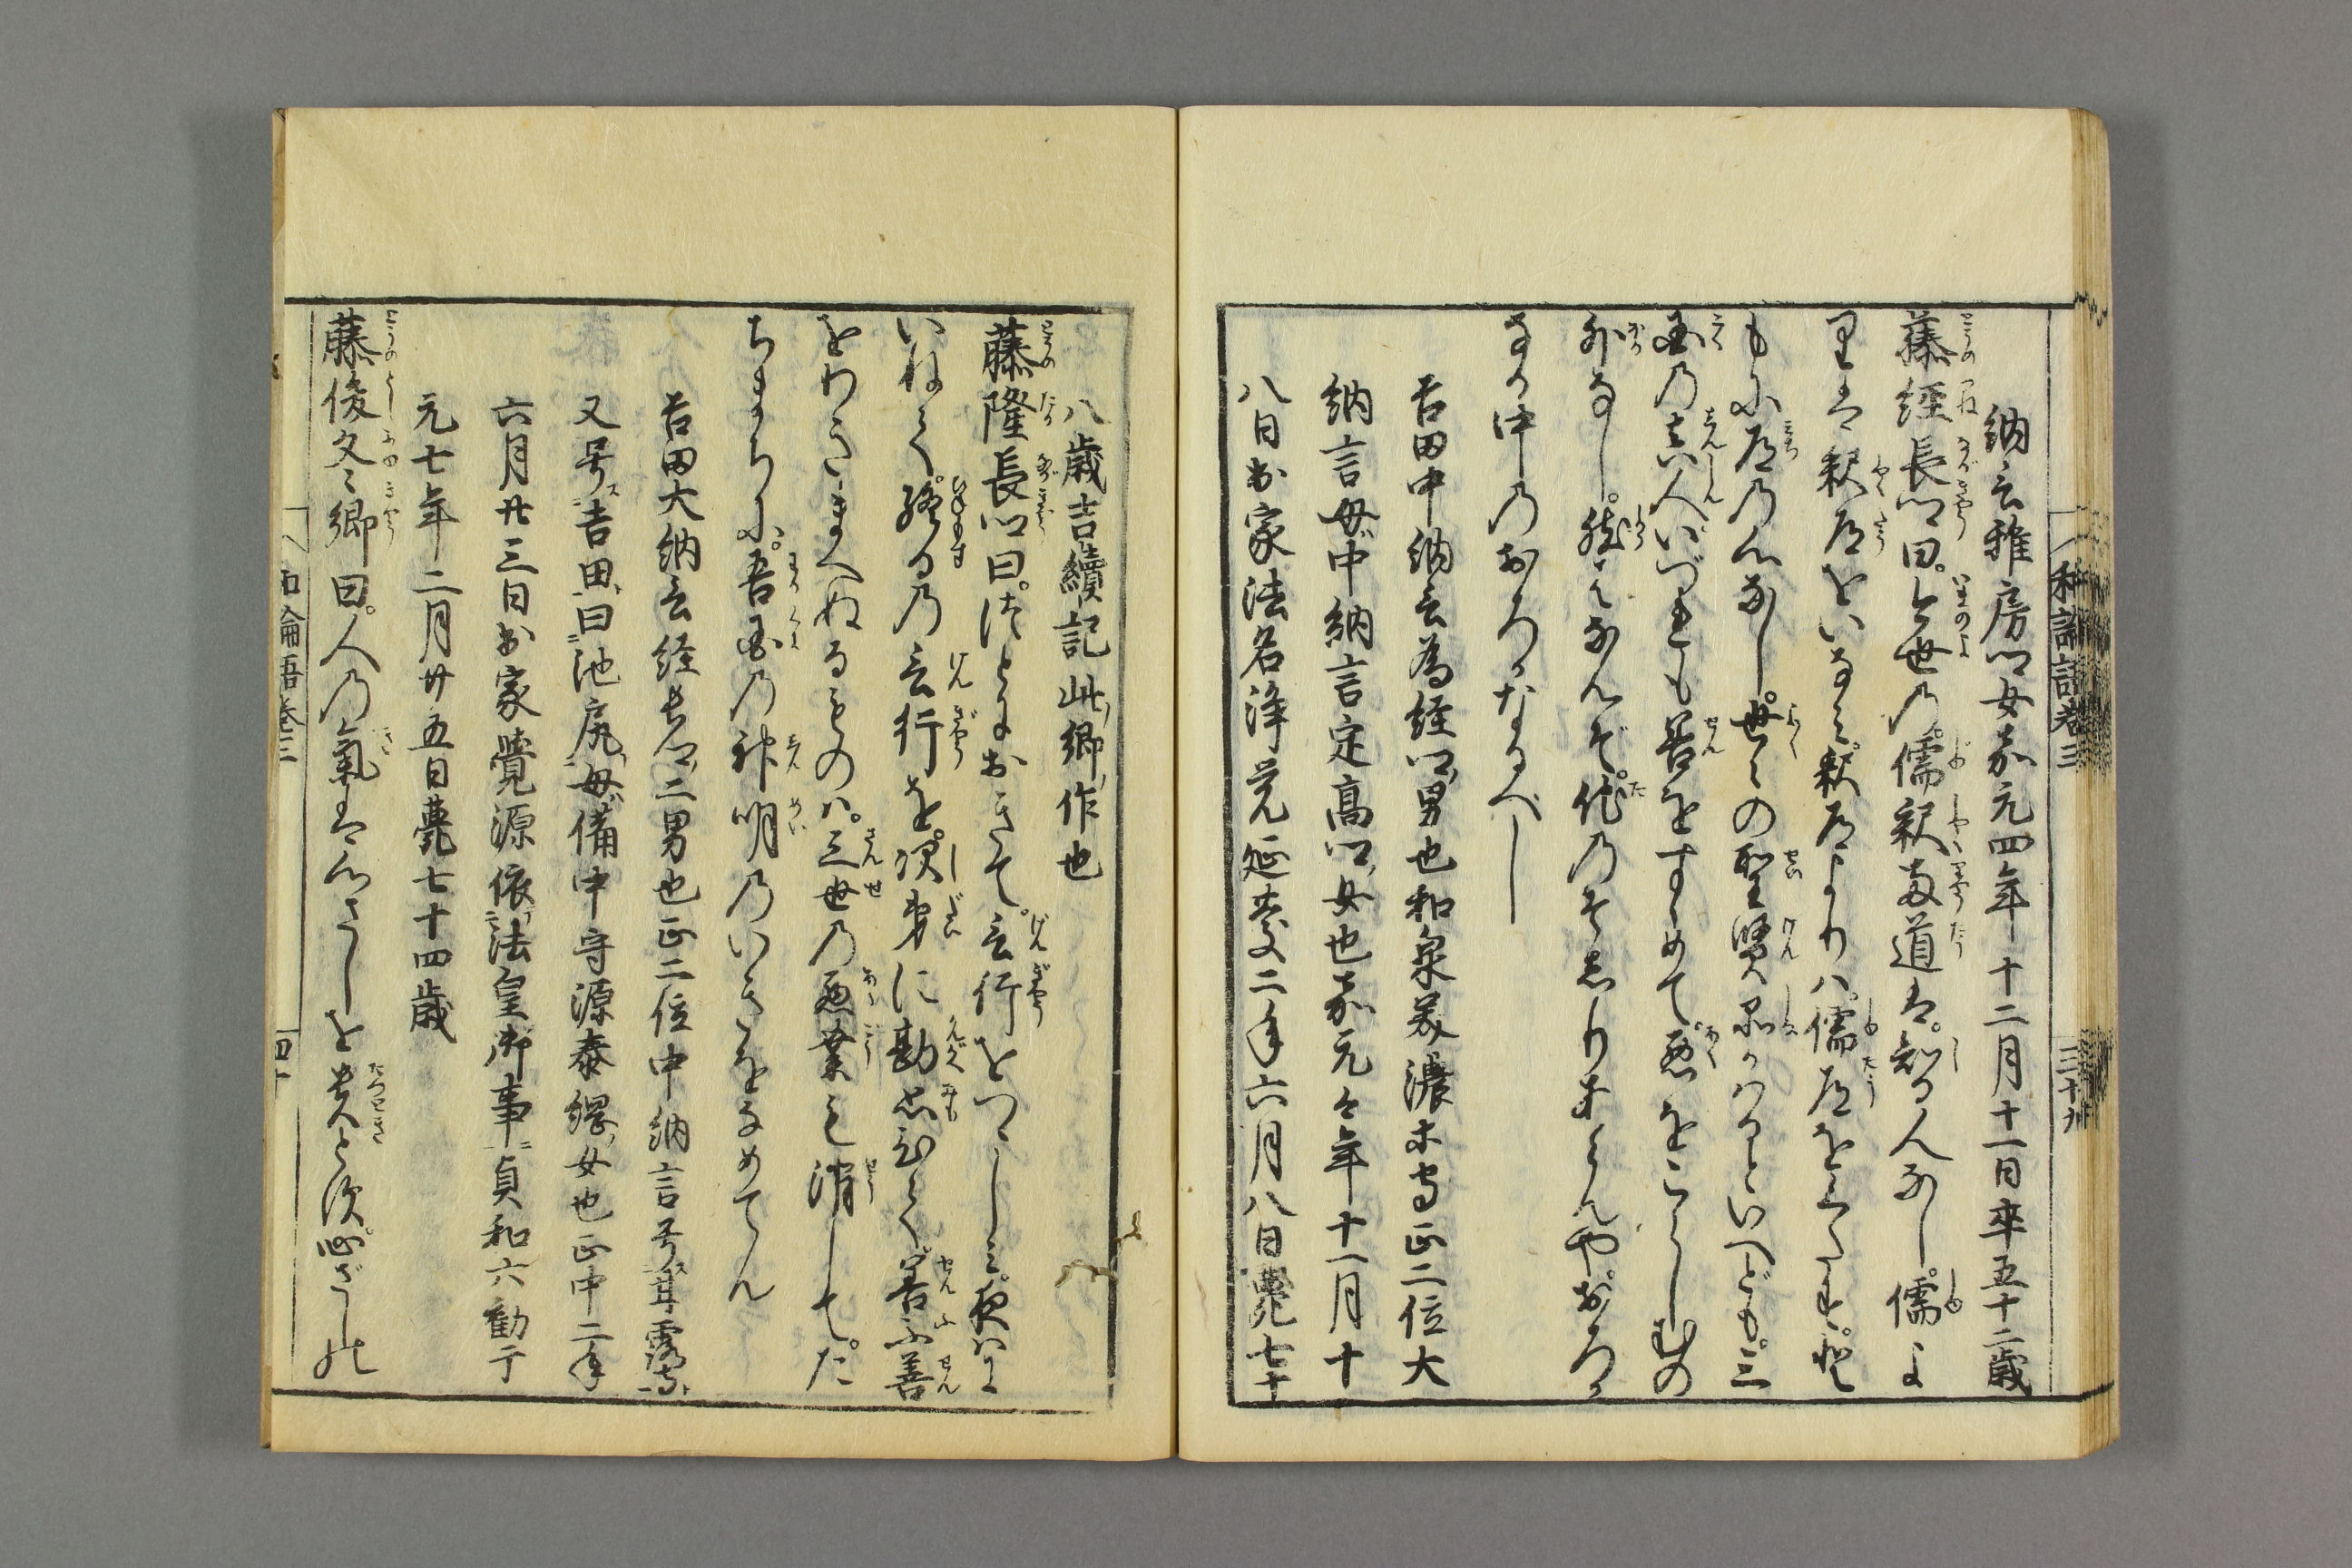 和論語巻三
三十九
納言雅房卿女嘉元四年十二月十一日卒五十二歳
藤經長卿曰。今世乃儒釈両道は。知る人なし。儒よ
りは釈道をいなみ。釈道よりハ。儒道を
もに道乃心なし。世々の聖賢品かハるといへども。三
国乃真人いづれも善をすゝめて。悪をこらしむの
外なし。然るをなんぞ。他乃そしりあらんや。おろか
なる中乃おろかなるべし
吉田中納言為経卿男也和泉美濃等守正二位大
納言母中納言定高卿女也嘉元々年十一月十
八日出家法名浄覚延慶二年六月八日薨七十
八歳吉續記此卿作也
藤隆長卿曰。つとにおきて。言行をつゝしみ。夜ハに
いねて。終日乃言行を。次第に勘思ひて。善不善
をわきまへぬるものハ。三世乃悪業も消して。た
ちまちに。吾国乃神明乃いきをなめてん
吉田大納言経長卿二男也正二位中納言号甘露寺
又号吉田曰池尻母備中守源泰綱女也正中二年
六月廿三日出家覺源依法皇御事貞和六勧丁
元七年二月廿五日薨七十四歳
藤俊文卿曰。人乃氣は心ざしを貴とす。心ざしれ
和論語巻三
四十